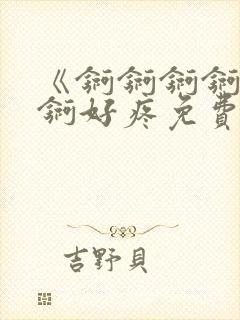 《锕锕锕锕
锕好疼免費
吉野貝